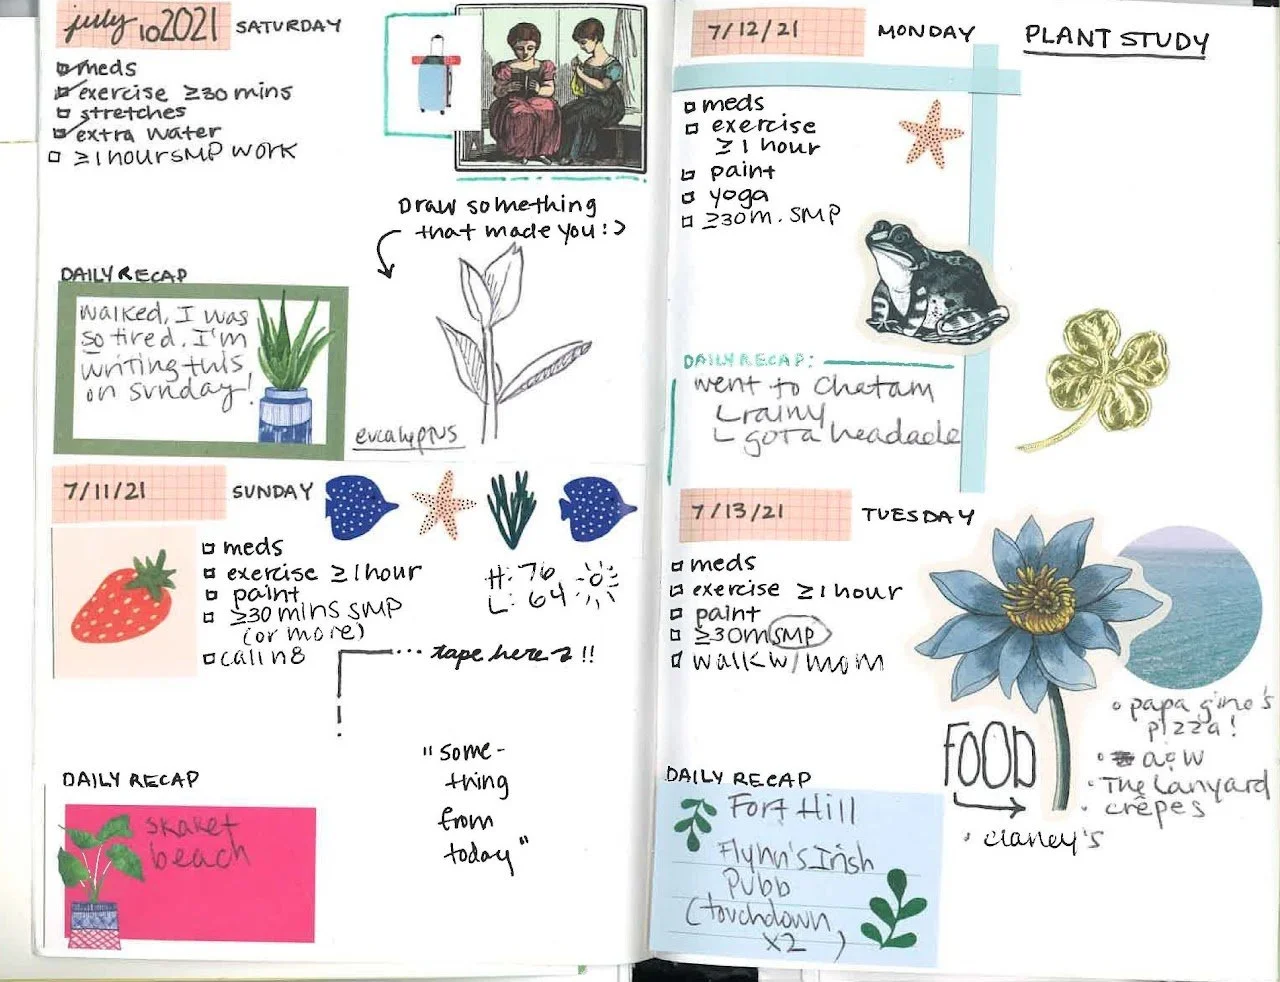 july 10 2021 SATURDAY
meds
exercise ≥30 mins
stretches
extra water
≥1 hour SMP WORK
Draw something
that made you :)
DAILY RECAP
walked, I was
so tired. I'm
writing this
on sunday!
eucalyptus
7/11/21 SUNDAY
meds
exercise ≥1 hour
paint
≥30 mins SMP
(or more)
call n8
H: 76
L: 64
... tape here !!
"some-
thing
from
today"
DAILY RECAP
skaket
beach
7/12/21 MONDAY
PLANT STUDY
meds
exercise
≥1 hour
paint
yoga
≥30m. SMP
DAILY RECAP:
went to Chatam
rainy
got a headache
7/13/21 TUESDAY
meds
exercise ≥1 hour
paint
≥30m SMP
walk w/ mom
FOOD
papa gino's
pizza!
a&w
The Lanyard
crêpes
clancy's
DAILY RECAP
Fort Hill
Flynn's Irish
Pubb
(touchdown
x2)